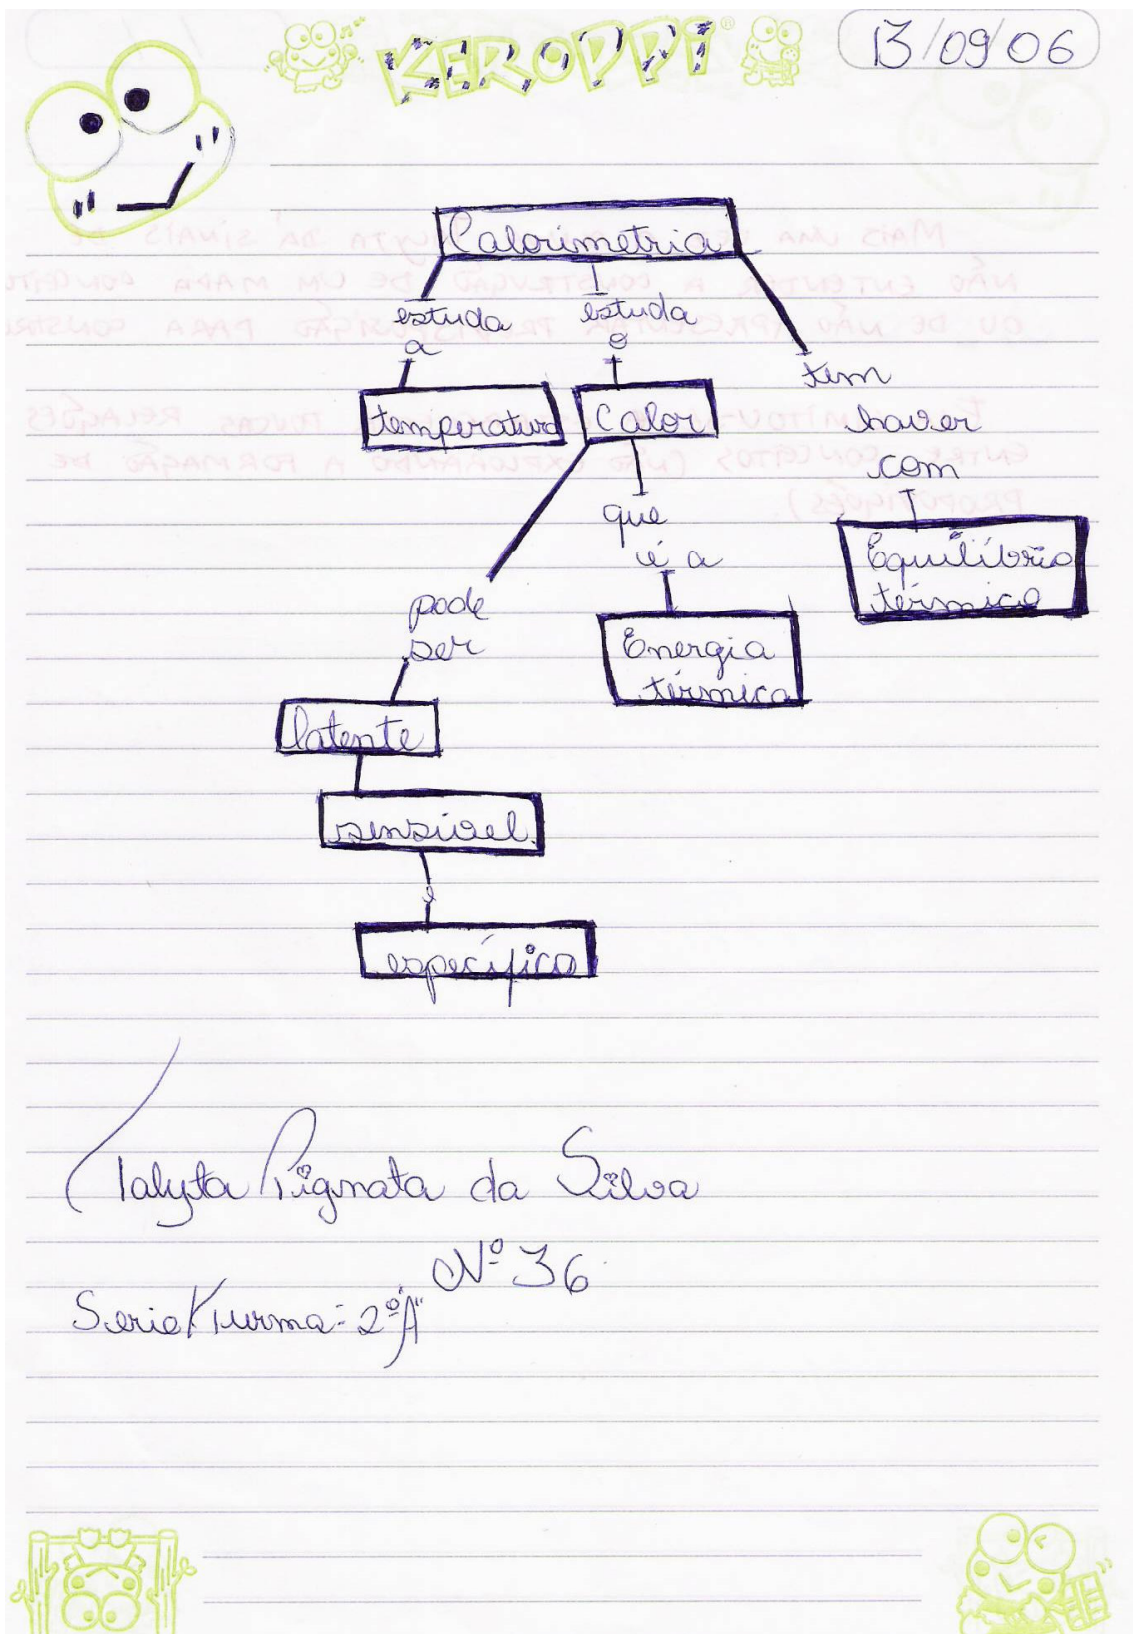 KEROPPI
13/09/06
Calorimetria
estuda
a
estuda
o
tem
haver
com
temperatura
Calor
que
é a
Equilíbrio
térmico
pode
ser
Energia
térmica
latente
sensível
e
específico
Talyta Pignata da Silva
Nº 36
Serie/Turma: 2º "A"